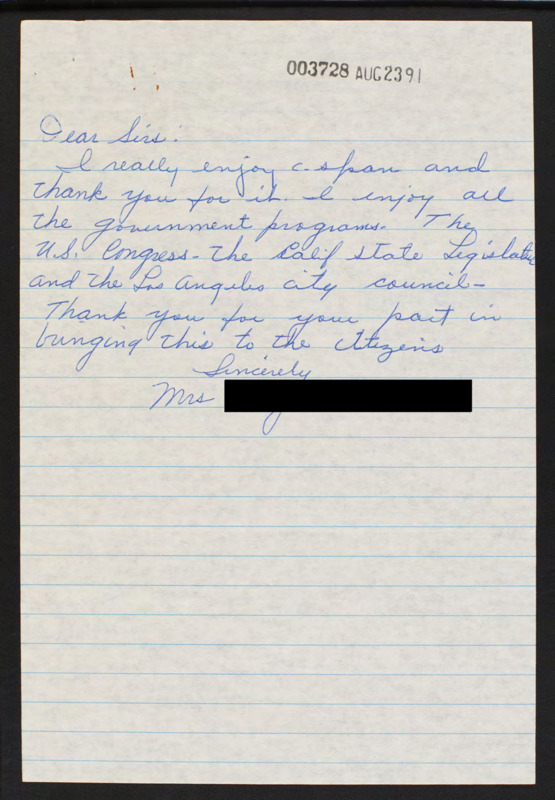 003728 AUG 23 91
Dear Sirs:
I really enjoy c-span and
thank you for it. I enjoy all
the government programs. The
U.S. Congress - the Calif state Legislature
and the Los Angeles city council -
Thank you for your part in
bringing this to the citizens
Sincerely
Mrs